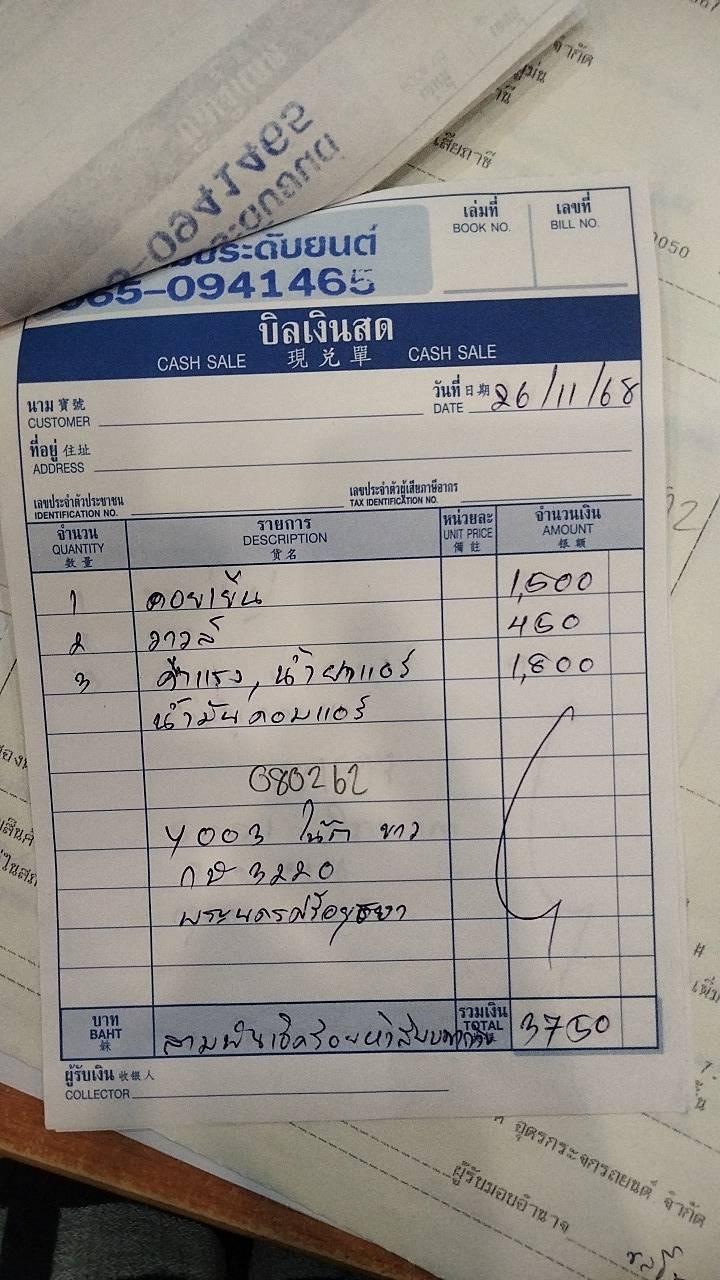 จำกัด
เสียภาษี
0050
ประดับยนต์
065-0941465
เล่มที่
BOOK NO.
เลขที่
BILL NO.
บิลเงินสด
CASH SALE 現兑單 CASH SALE
นาม 寶號
CUSTOMER
วันที่ 日期
DATE 26/11/68
ที่อยู่ 住址
ADDRESS
เลขประจำตัวประชาชน
IDENTIFICATION NO.
เลขประจำตัวผู้เสียภาษีอากร
TAX IDENTIFICATION NO.
จำนวน รายการ หน่วยละ จำนวนเงิน
QUANTITY DESCRIPTION UNIT PRICE AMOUNT
數量 貨名 備註 銀額
1 คอยเย็น 1,500
2 วาวล์ 450
3 ค่าแรง, น้ำยาแอร์ 1,800
น้ำมันคอมแอร์
080262
4003 ขาว
3220
พระนครศรีอยุธยา
บาท
BAHT
銖
สามพันเจ็ดร้อยห้าสิบบาทถ้วน
รวมเงิน
TOTAL
3750
ผู้รับเงิน 收银人
COLLECTOR
อุดรกระจกรถยนต์ จำกัด
ผู้รับมอบอำนาจ